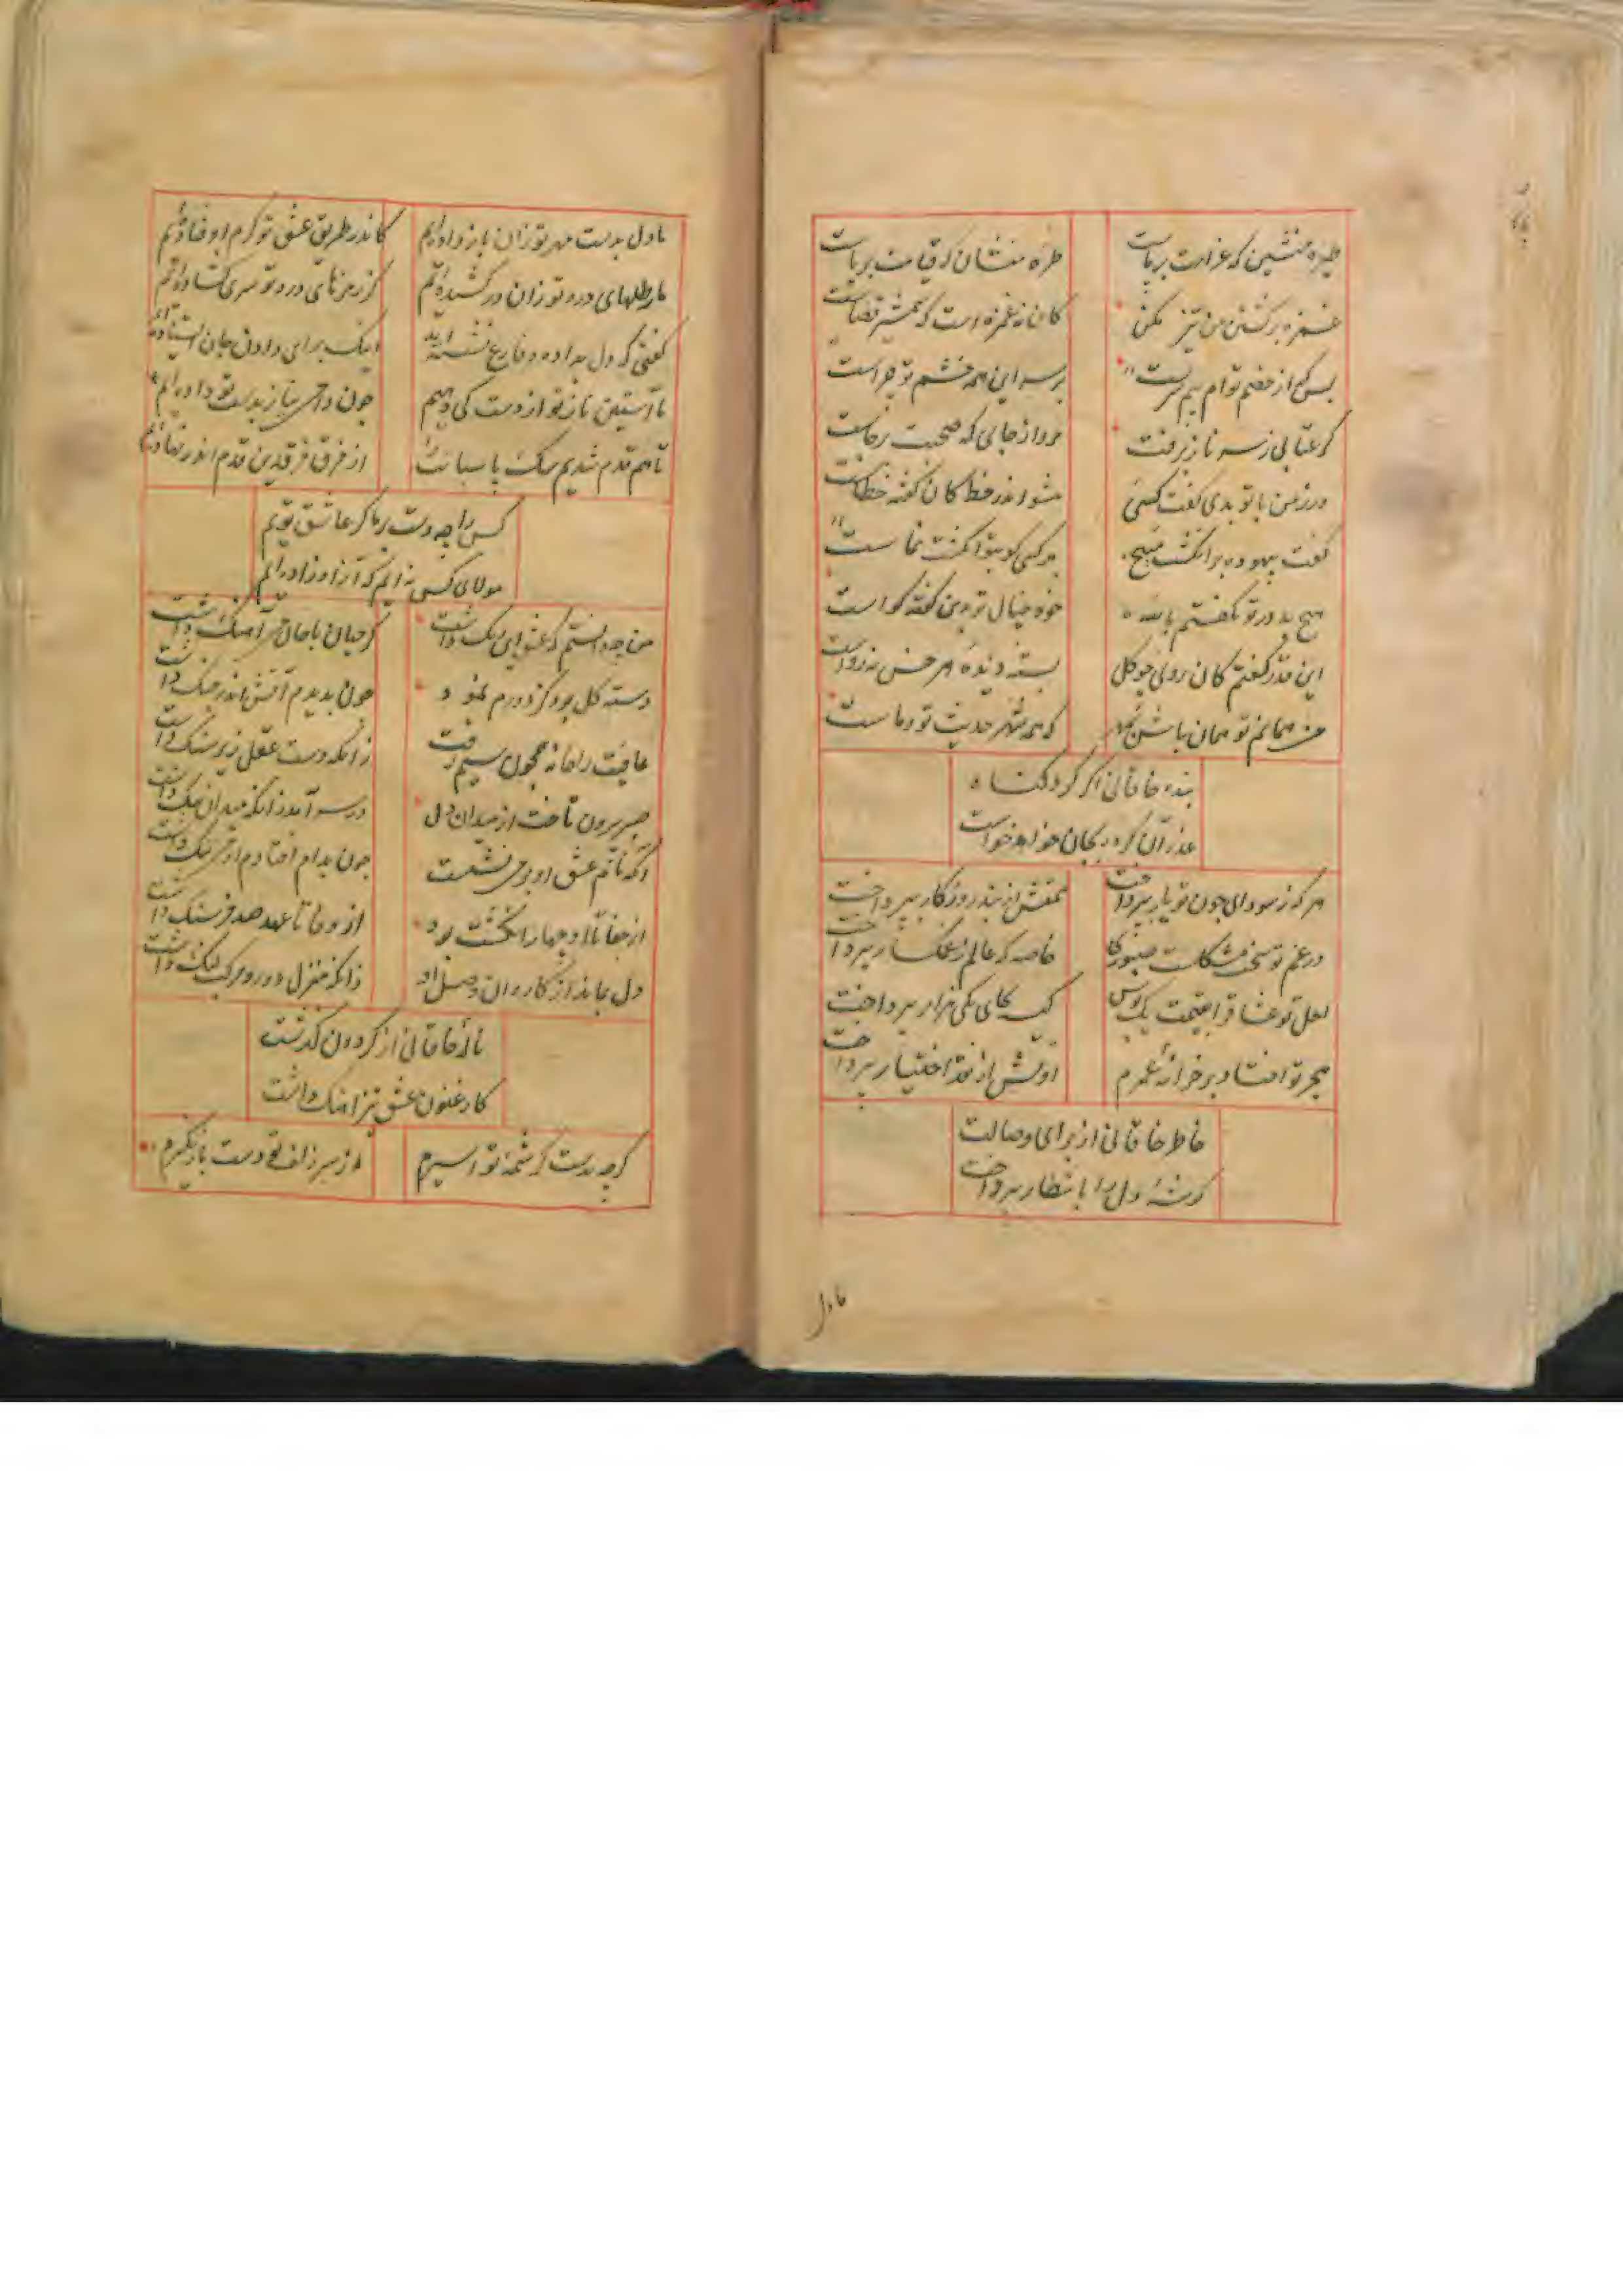 طیره منشین که غرامت برپاست
طره مفشان که قیامت برپاست
غمزه بر کشتن من تیز مکن
کان نه غمزه است که شمشیر قضاست
بس که از خصم توام بیم سرست
بر سر این همه خشم تو چراست
گر عتابی ز سر ناز برفت
مرو از جای که صحبت برجاست
ور ز من با تو بدی گفت کسی
مشو اندر خط کان گفته خطاست
گفت بیهوده بر انگشت مپیچ
هر کسی کو بتو انگشت نماست
هیچ بد در تو نگفتم بالله
خود خیال تو برین گفته گواست
این قدر گفتم کان روی چو گل
بسته دیده هر خس نه رواست
من همانم تو همان باش
که همه شهر حدیث تو و ماست
بنده خاقانی اگر کرد گناه
عذر آن کرده بجان خواهد خواست
هر که ز سودای چون تو یار بپرداخت
همتش از بند روزگار بپرداخت
در غم تو سخت مشکلست صبوری
خاصه که عالم ز غمگسار بپرداخت
لعل تو عشاق را بقیمت یک بوس
کیسه بجای یکی هزار بپرداخت
هجر تو افتاد بر خزانه عمرم
اولش از نقد اختیار بپرداخت
خاطر خاقانی از برای وصالت
گوشه دل را بانتظار بپرداخت
مادل
مادل بدست مهر تو زان باز داده‌ایم
کاندر طریق عشق تو گرم اوفتاده‌ایم
ما رطلهای درد تو زان در کشیده‌ایم
کز رمزهای درد تو سری گشاده‌ایم
گفتی که دل بداده و فارغ نشسته‌اید
اینک برای دادن جان ایستاده‌ایم
تا آستین ناز تو از دست کی دهیم
چون دامن نیاز بدست تو داده‌ایم
تا هم قدم شدیم سگ پاسبانت
از فرق فرقدین قدم اندر نهاده‌ایم
کس را چه دست بر ما گر عاشق توییم
مولای کس نه‌ایم که آزاد زاده‌ایم
من چه دانستم که عشق این رنگ داشت
کز جهان با جان من آهنگ داشت
دسته گل بود کز دورم نمود
چون بدیدم آتش اندر چنگ داشت
عافیت را خانه همچون سیم رفت
زانکه دست عقل زیر سنگ داشت
صبر بیرون تاخت از میدان دل
در سر آمد زانکه میدان تنگ داشت
از جفا تا او چهار انگشت بود
از وفا تا عهد صد فرسنگ داشت
دل بماند از کاروان وصل او
زانکه منزل دور و مرکب لنگ داشت
ناله خاقانی از گردون گذشت
کارغنون عشق تیز آهنگ داشت
گرچه بدست کرشمه تو اسیرم
از سر زلف تو دست باز نگیرم